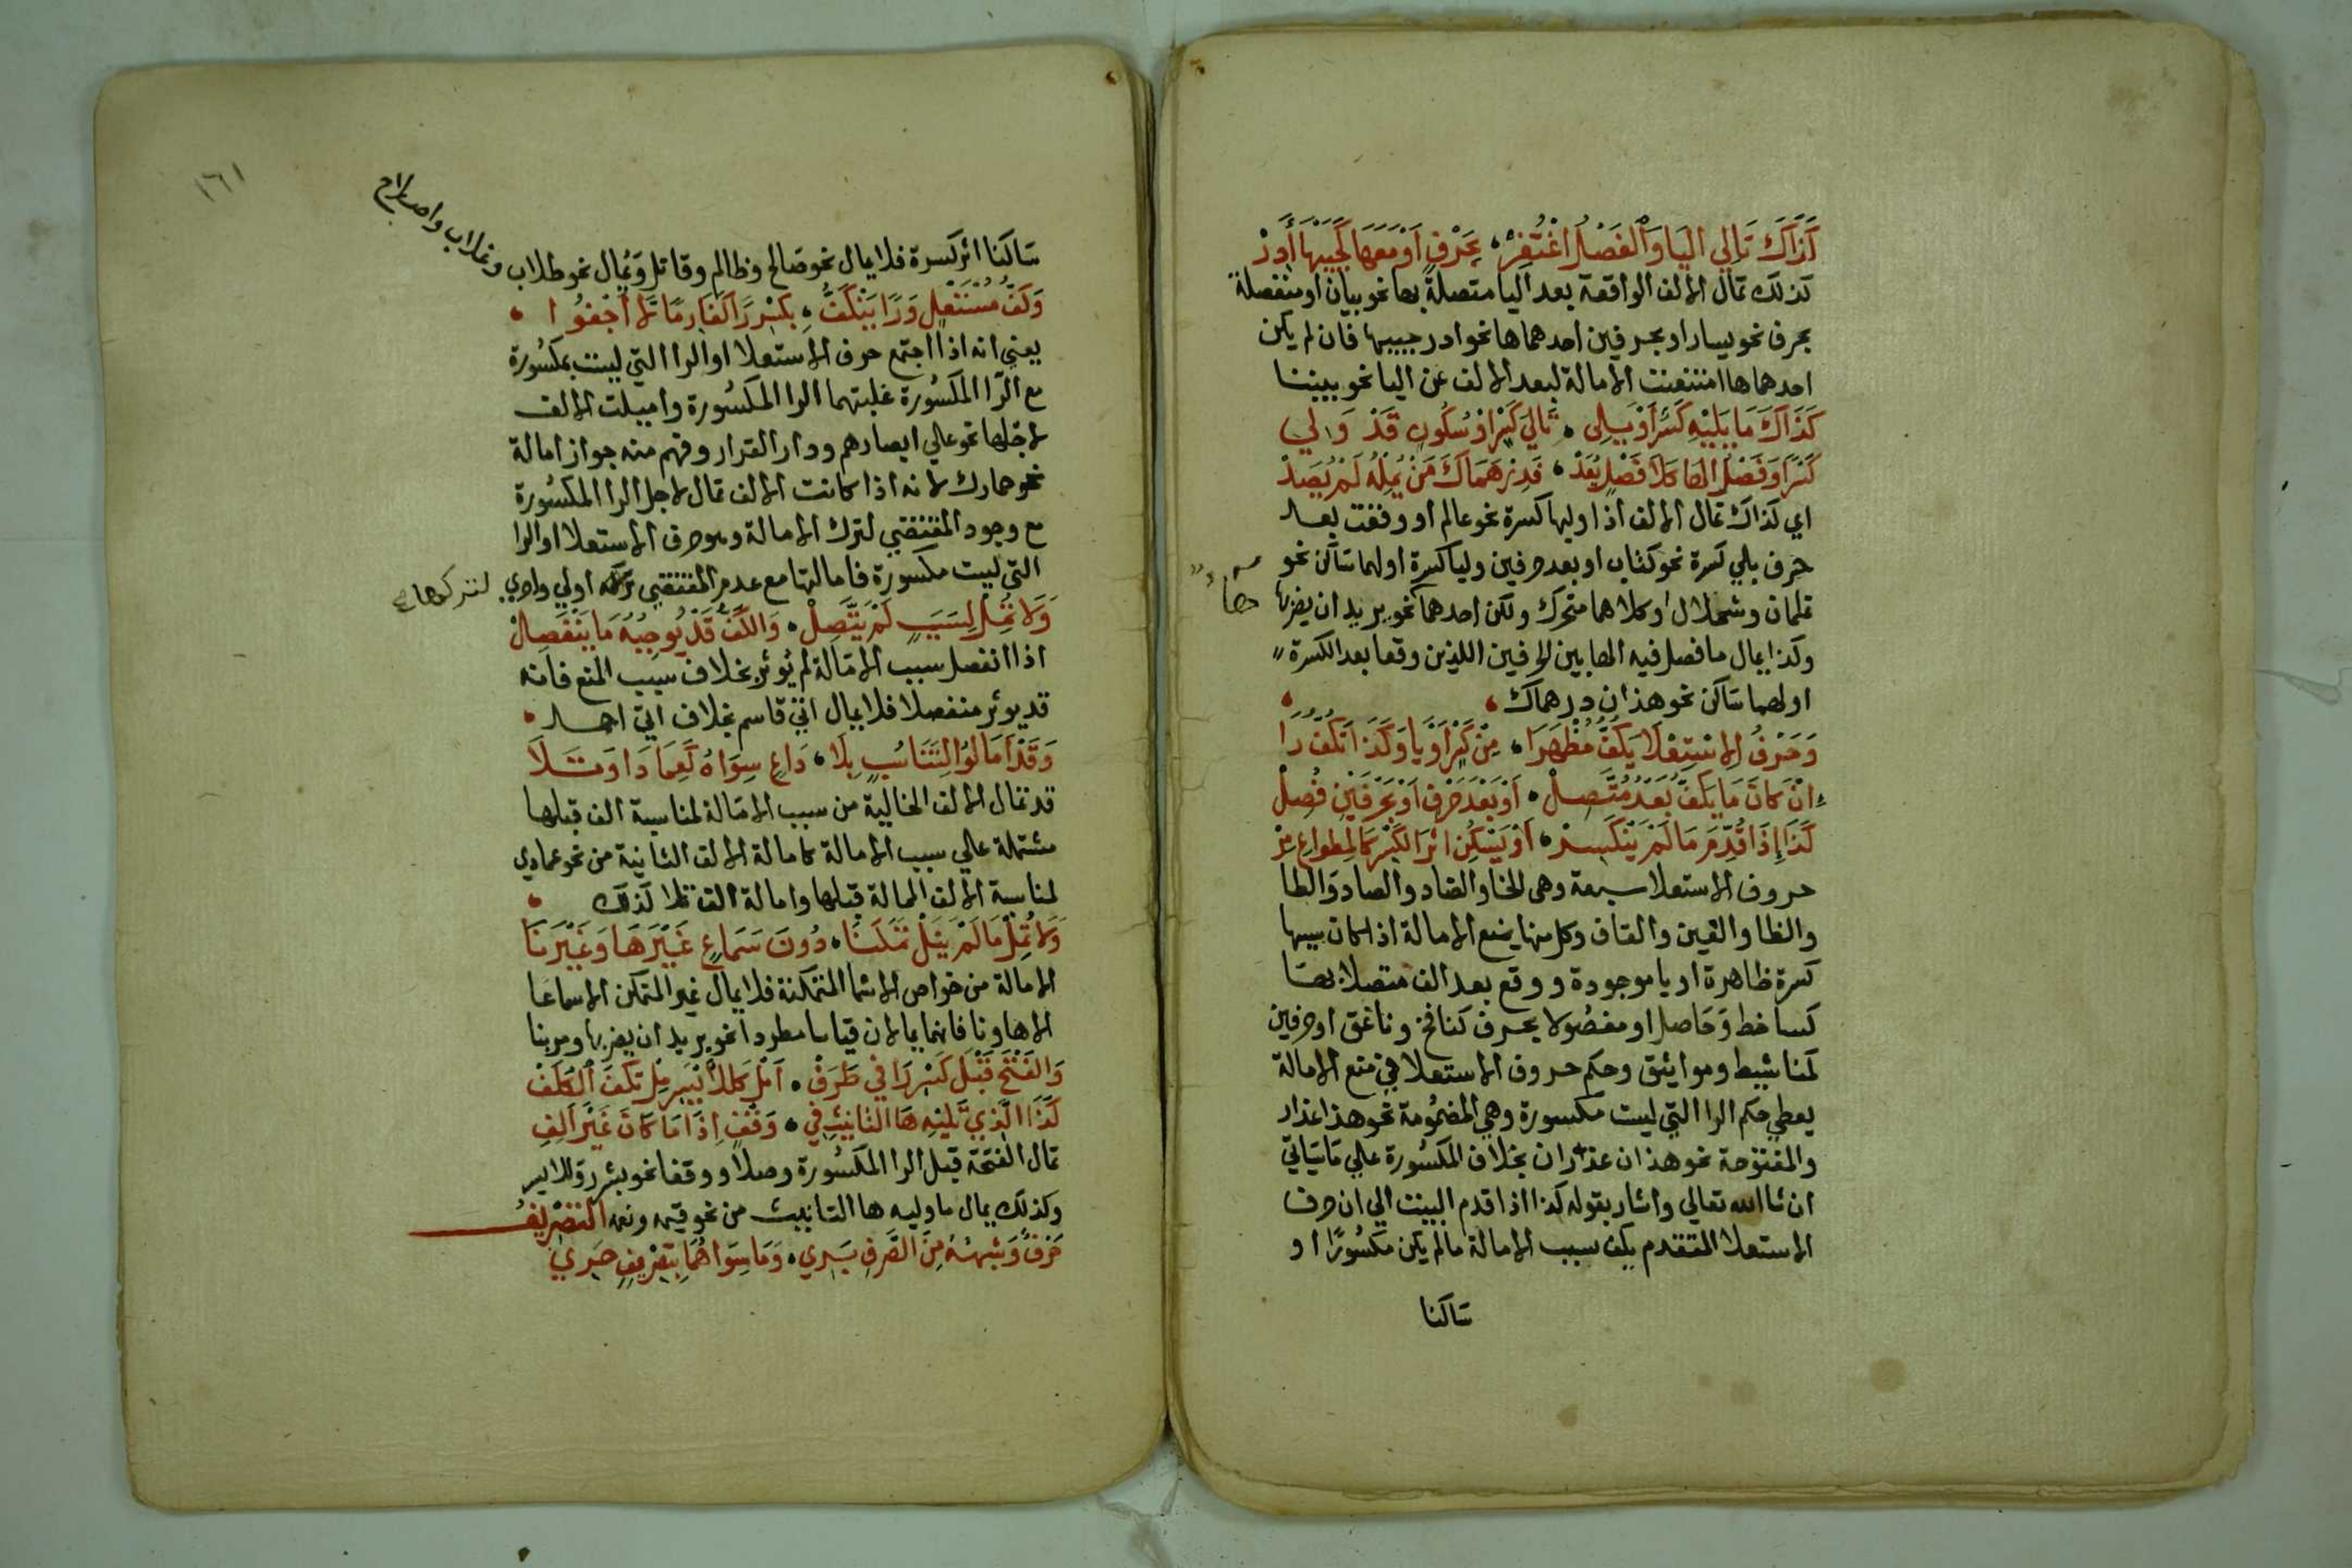 كَذَاكَ تَالِي اليَا وَالفَصْلُ اغْتُفِرْ ، بِحَرْفٍ اَوْ مَعَ هَا كَجَيْبَهَا أَدِرْ
كذلك تمال الالف الواقعة بعد اليا متصلةً بها نحو بيان او منفصلة
بحرف نحو يسار او بحرفين احدهما ها نحو ادر جيبها فان لم يكن
احدهما ها امتنعت الامالة لبعد الالف عن اليا نحو بيننا
كَذَاكَ مَا يَلِيْهِ كَسْرٌ أَوْ يَلِي ، تَالِيَ كَسْرٍ اوْ سُكُونٍ قَدْ وَلِي
كَسْرًا وَفَصْلُ الهَا كَلَا فَصْلٍ يُعَدْ ، فَدِرْهَمَاكَ مَنْ يُمِلْهُ لَمْ يُصَدْ
اي كذاك تمال الالف اذا وليها كسرة نحو عالم او وقفت بعد
حرف يلي كسرة نحو كتاب او بعد حرفين وليا كسرة اولهما ساكن نحو
تلمان وشملال او كلاهما متحرك ولكن احدهما نحو يريد ان يضربها
ها
وكذا يمال ما فصل فيه الها بين الحرفين اللذين وقعا بعد الكسرة
اولهما ساكن نحو هذان درهماك ،
وَحَرْفُ الِاسْتِعْلَا يَكُفُّ مُظْهَرَا ، مِنْ كَسْرٍ اَوْ يَا وَكَذَا تَكُفُّ رَا
اِنْ كَانَ مَا يَكُفُّ بَعْدُ مُتَّصِلْ ، اَوْ بَعْدَ حَرْفٍ اَوْ بِحَرْفَيْنِ فُصِلْ
كَذَا إِذَا قُدِّمَ مَا لَمْ يَنْكَسِرْ ، اَوْ يَسْكُنِ اثْرَ الكَسْرِ كَالمِطْوَاعِ مِرْ
حروف الاستعلا سبعة وهي الخا والضاد والصاد والطا
والظا والغين والقاف وكل منها يمنع الامالة اذا كان سببها
كسرة ظاهرة او يا موجودة ووقع بعد الف متصلا بها
كساخط وحاصل او مفصولا بحرف كنافخ وناغق او حرفين
كمناشيط ومواثيق وحكم حروف الاستعلا في منع الامالة
يعطي حكم الرا التي ليست مكسورة وهي المضمومة نحو هذا عذار
والمفتوحة نحو هذان عذاران بخلاف المكسورة علي ما سياتي
ان شا الله تعالي واشار بقوله كذا اذا قدم البيت الي ان حرف
الاستعلا المتقدم يكف سبب الامالة ما لم يكن مكسورًا او
ساكنا
١٦١
ساكنا اثر كسرة فلا يمال نحو صالح وظالم وقاتل ويُمال نحو طلاب وغلاب واصلاح
وَكَفُّ مُسْتَعْلٍ وَرًا يَنْكَفُّ ، بِكَسْرِ رًا كَغَارِمًا لَا أَجْفُوا ،
يعني انه اذا اجتمع حرف الاستعلا او الرا التي ليست بمكسورة
مع الرا المكسورة غلبتهما الرا المكسورة واميلت الالف
لاجلها نحو علي ابصارهم ودار القرار وفهم منه جواز امالة
نحو حمارك لانه اذا كانت الالف تمال لاجل الرا المكسورة
مع وجود المقتضي لترك الامالة وهو حرف الاستعلا او الرا
التي ليست مكسورة فامالتها مع عدم المقتضي تركه اولي واحري لتركها ع
وَلَا تُمِلْ لِسَبَبٍ لَمْ يَتَّصِلْ ، وَالكَفُّ قَدْ يُوجِبُهُ مَا يَنْفَصِلْ
اذا انفصل سبب الامالة لم يوثر بخلاف سبب المنع فانه
قد يوثر منفصلا فلا يمال اتي قاسم بخلاف اتي احمد ،
وَقَدْ اَمَالُوا لِتَنَاسُبٍ بِلَا ، دَاعٍ سِوَاهُ كَعِمَادَا وَتَلَا
قد تمال الالف الخالية من سبب الامالة لمناسبة الف قبلها
مشتملة علي سبب الامالة كامالة الالف الثانية من نحو عمادي
لمناسبة الالف الممالة قبلها وامالة الف تلا كذلك ،
وَلَا تُمِلْ مَا لَمْ يَنَلْ تَمَكُّنًا ، دُونَ سَمَاعٍ غَيْرَ هَا وَغَيْرَ نَا
الامالة من خواص الاسما المتمكنة فلا يمال غير المتمكن الا سماعا
الا ها ونا فانهما يمالان قياسا مطردا نحو يريد ان يضربها ومر بنا
وَالفَتْحَ قَبْلَ كَسْرِ رَا في طَرَفْ ، اَمِلْ كَلِلْأَيْسَرِ مِلْ تُكْفَ الكُلَفْ
كَذَا الَّذِي تَلِيْهِ هَا التَانِيثِ في ، وَقْفٍ اِذَا مَا كَانَ غَيْرَ اَلِفِ
تمال الفتحة قبل الرا المكسورة وصلا ووقفا نحو بشرر وللايسر
وكذلك يمال ما وليه ها التانيث من نحو قيمه ونعمه التَصْرِيفُ
حَرْفٌ وَشِبْهُهُ مِنَ الصَّرْفِ بَرِي ، وَمَا سِوَاهُمَا بِتَصْرِيفٍ حَرِي